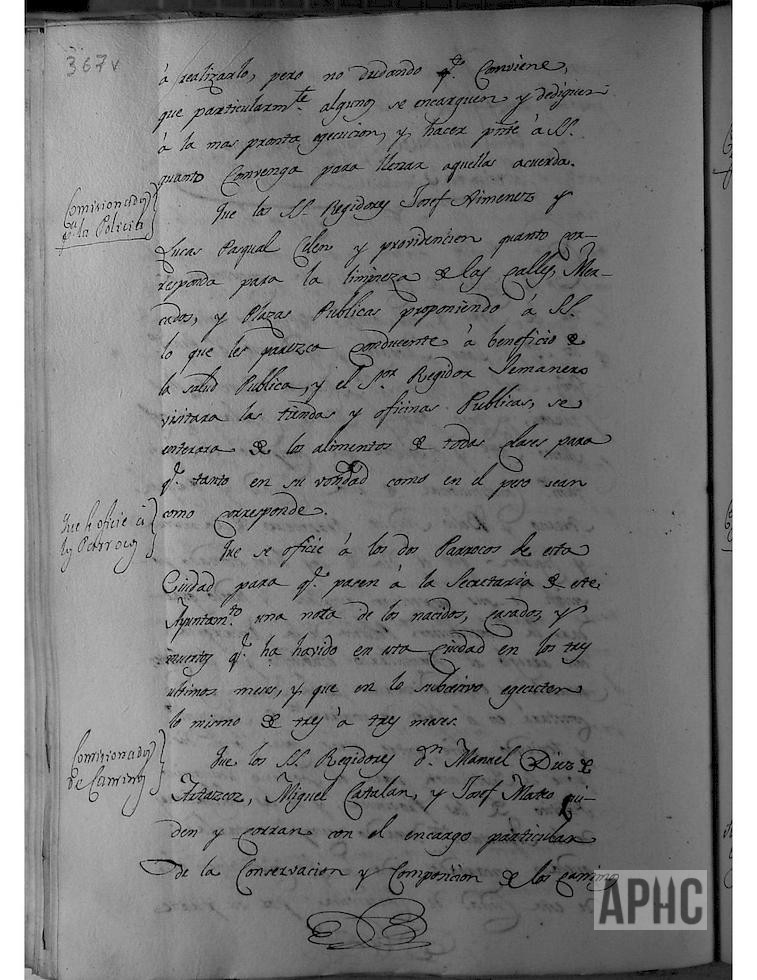 367v
á realizarlo, pero no dudando q.e Conviene,
que particularm.te algunos se encarguen y dediquen
á la mas pronta egecucion, y hacer pnte á SS.
quanto Convenga para llenar aquellas acuerda.
Comisionados
de la Policia
Que los SS. Regidores Josef Ximenez y
Lucas Pasqual Celen y providencien quanto cor-
responda para la limpieza de las Calles, Mer-
cados, y Plazas Publicas proponiendo á SS.
lo que les parezca Conducente á beneficio de
la salud Publica, y el S.or Regidor Semanero
visitara las tiendas y oficinas Publicas, se
enterara de los alimentos de todas clases para
q.e tanto en su vondad como en el peso sean
como Corresponde.
Que se oficie á
los Parrocos
Que se oficie á los dos Parrocos de esta
Ciudad para q.e pasen á la Secretaria de este
Ayuntam.to una nota de los nacidos, casados, y
muertos q.e ha havido en esta Ciudad en los tres
ultimos meses, y que en lo subcesivo egecuten
lo mismo de tres á tres meses.
Comisionados
de Caminos
Que los SS. Regidores D.n Manuel Diez de
Artazcoz, Miguel Catalan, y Josef Mateo cui-
den y corran con el encargo particular
de la Conservacion y Composicion de los Caminos
APHC